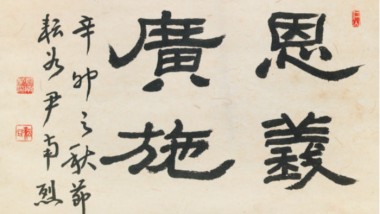 恩義
廣施
辛卯之秋節
耘谷尹南烈